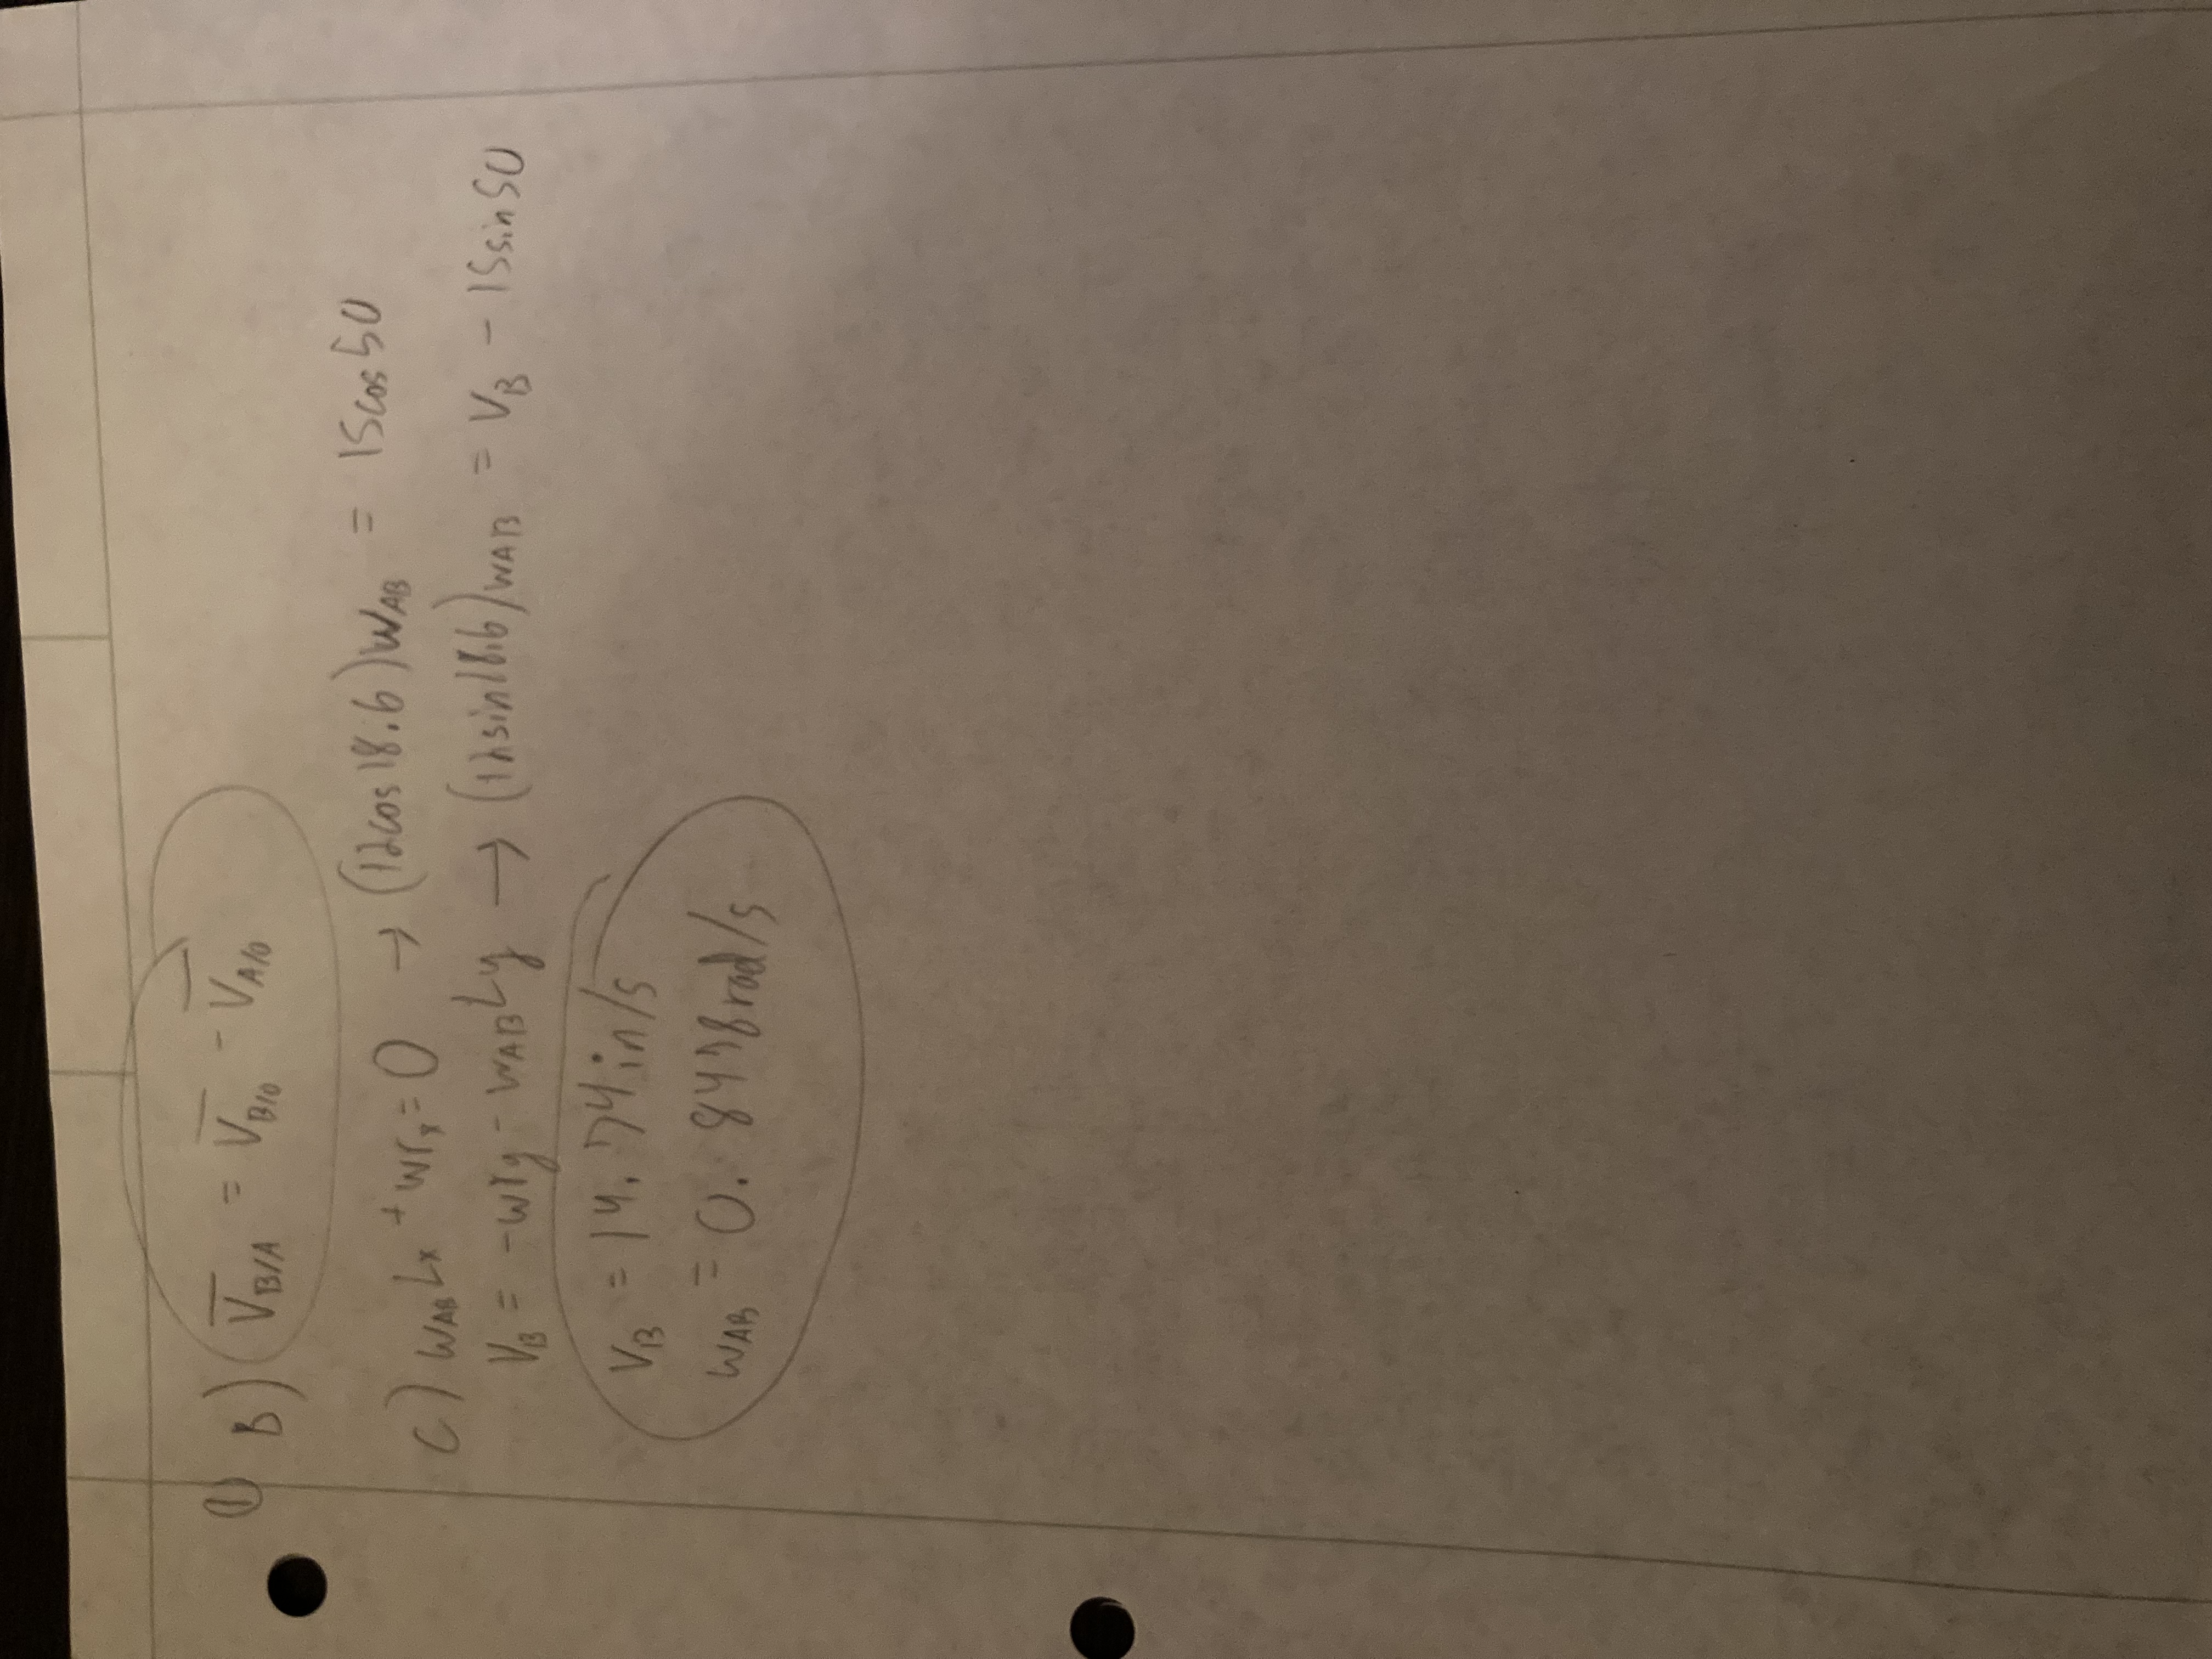 ① B) V̅B/A = V̅B/O - V̅A/O
C) wAB Lx + wrx = 0 → (12cos18.6)wAB = 15cos50
VB = -wry - wAB Ly → (12sin18.6)wAB = VB - 15sin50
VB = 14.74in/s
wAB = 0.8478rad/s